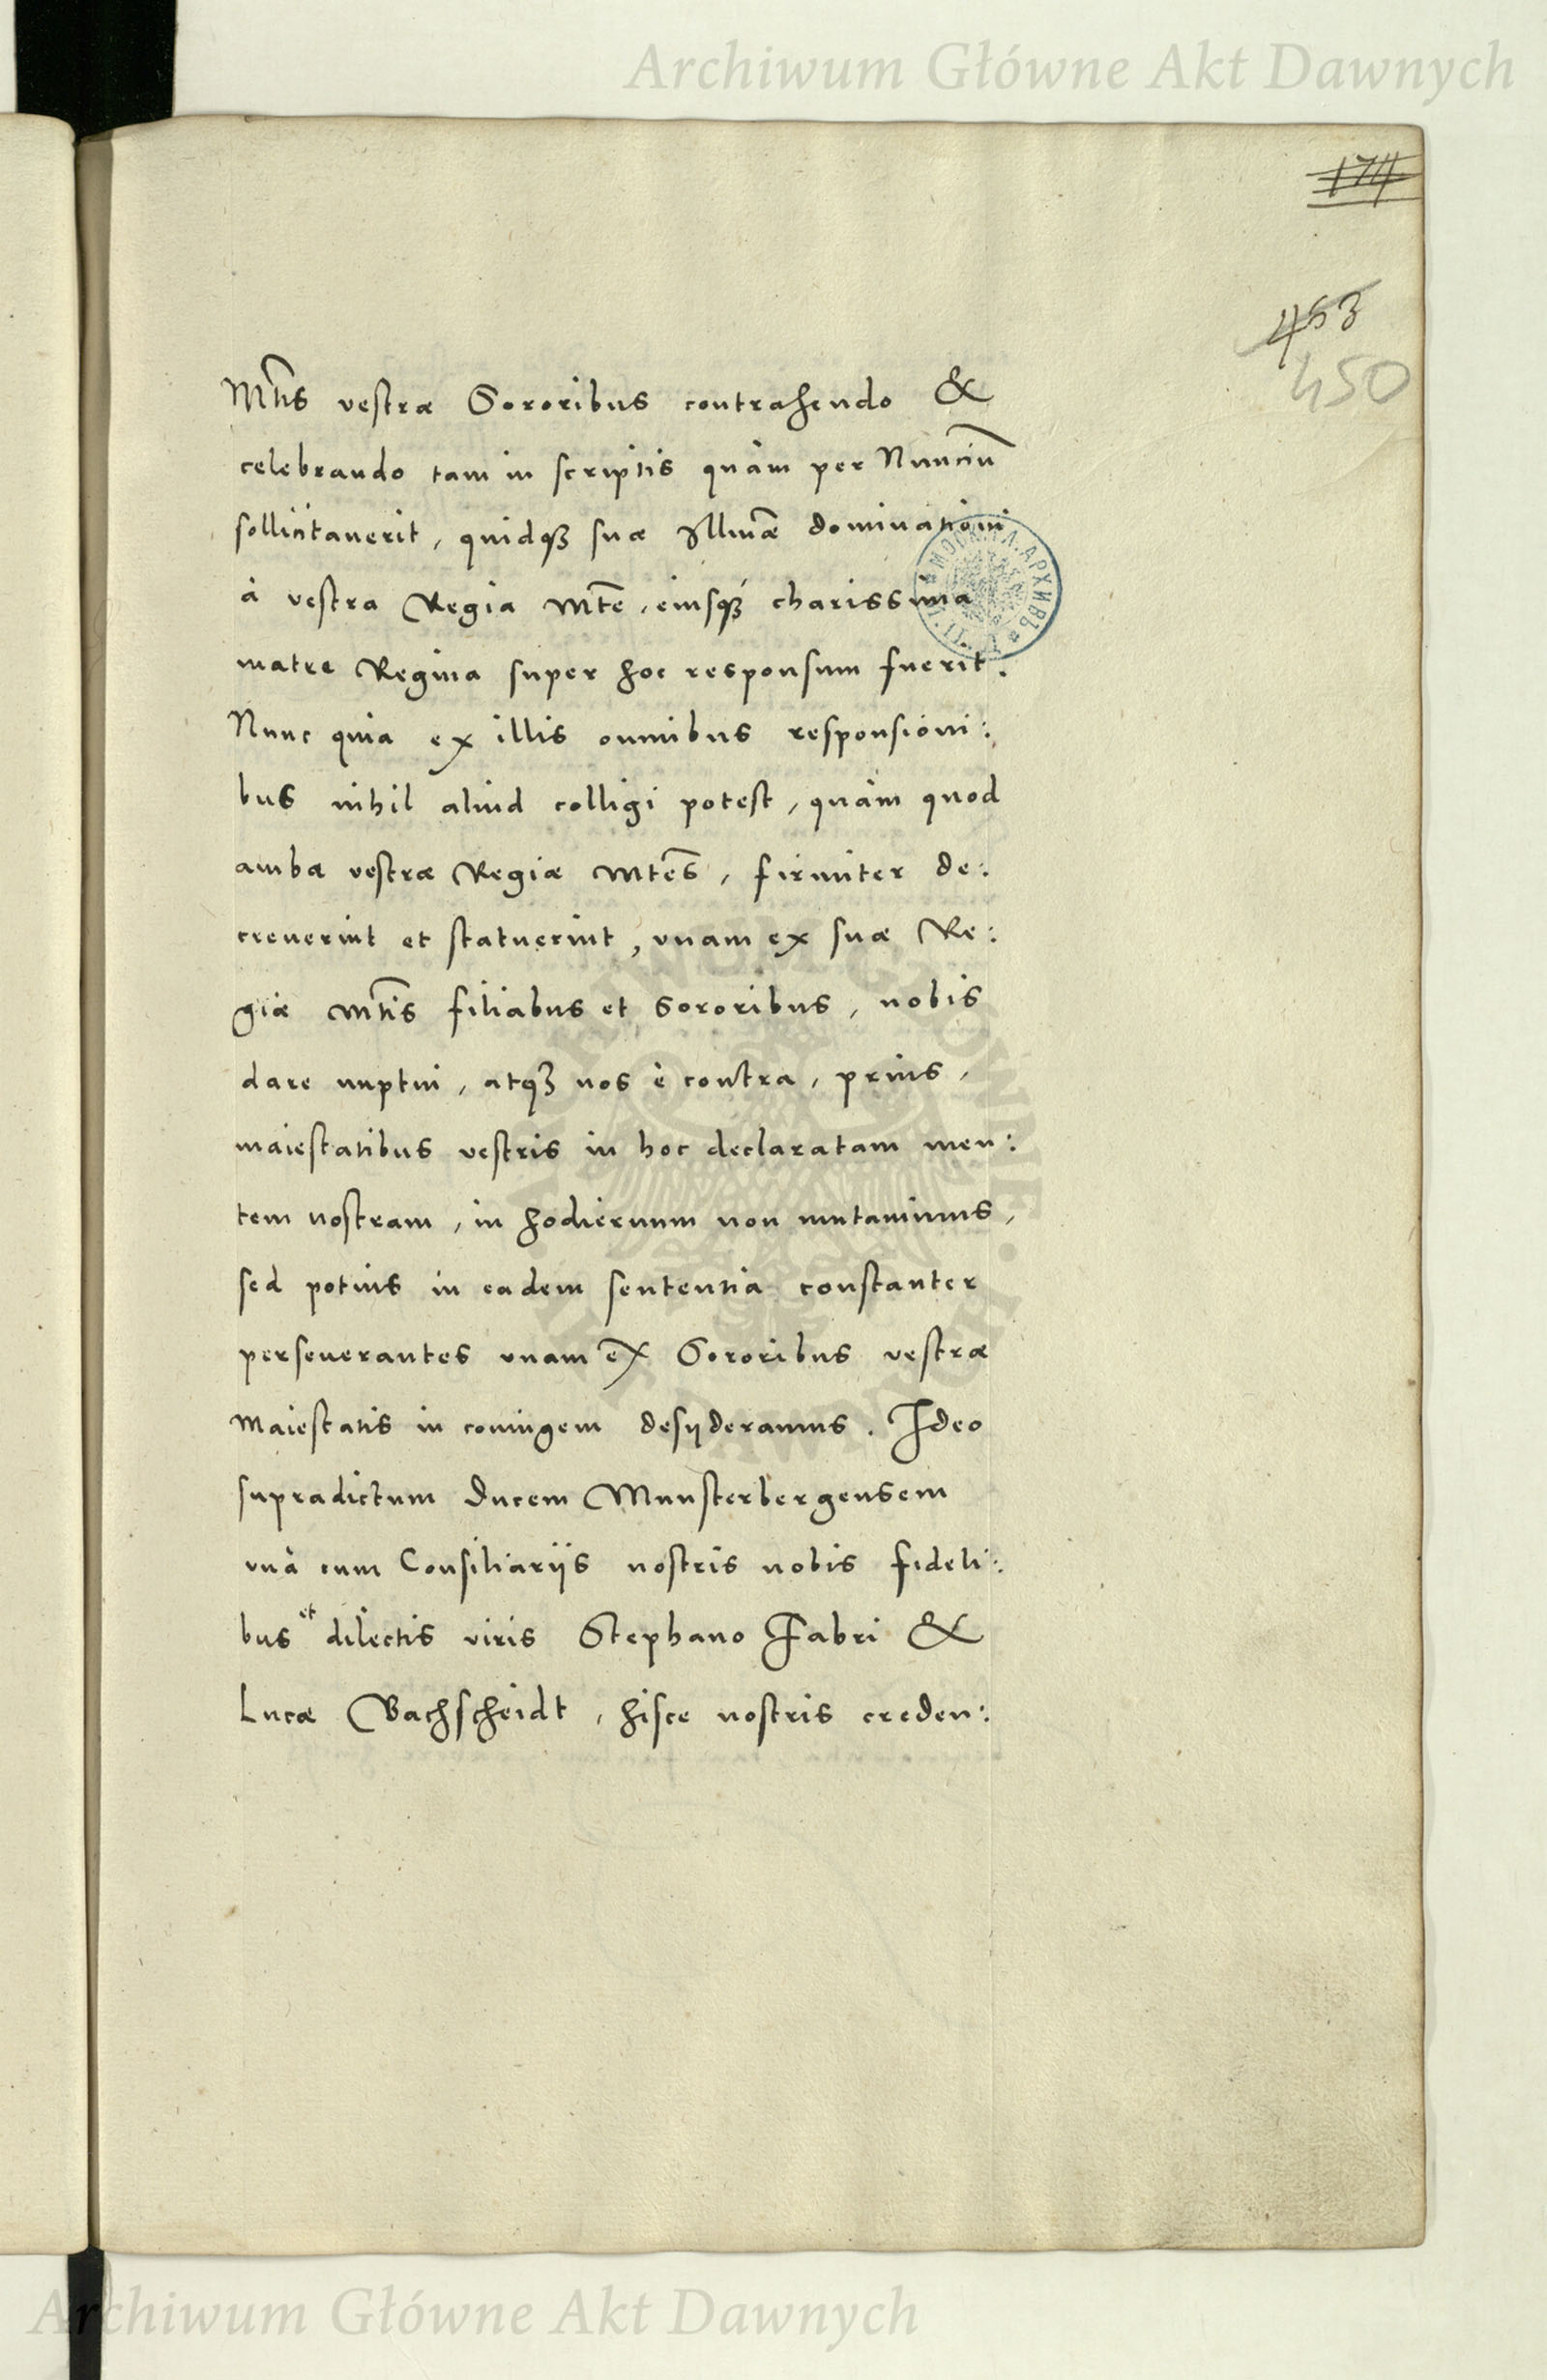 Archiwum Główne Akt Dawnych
174
453
450
Mtis vestræ Sororibus contrahendo &
celebrando tam in scriptis quàm per Nunciū
sollicitaverit, quidqȝ suæ Illmæ dominationi
à vestra Regia Mte, eiusqȝ charissima
matre Regina super hoc responsum fuerit.
Nunc quia ex illis omnibus responsioni:
bus nihil aliud colligi potest, quàm quod
ambæ vestræ Regiæ Mtes, firmiter de:
creverint et statuerint, vnam ex suæ Re:
giæ Mtis filiabus et sororibus, nobis
dare nuptui, atqȝ nos è contra, prius,
maiestatibus vestris in hoc declaratam men:
tem nostram, in hodiernum non mutavimus,
sed potius in eadem sententia constanter
perseuerantes vnam ex Sororibus vestræ
Maiestatis in coniugem desyderamus. Ideo
supradictum Ducem Munsterbergensem
vnà cum Consiliariis nostris nobis fideli:
bus et dilectis viris Stephano Fabri &
Lucæ Bachscheidt, hisce nostris creden:
Archiwum Główne Akt Dawnych